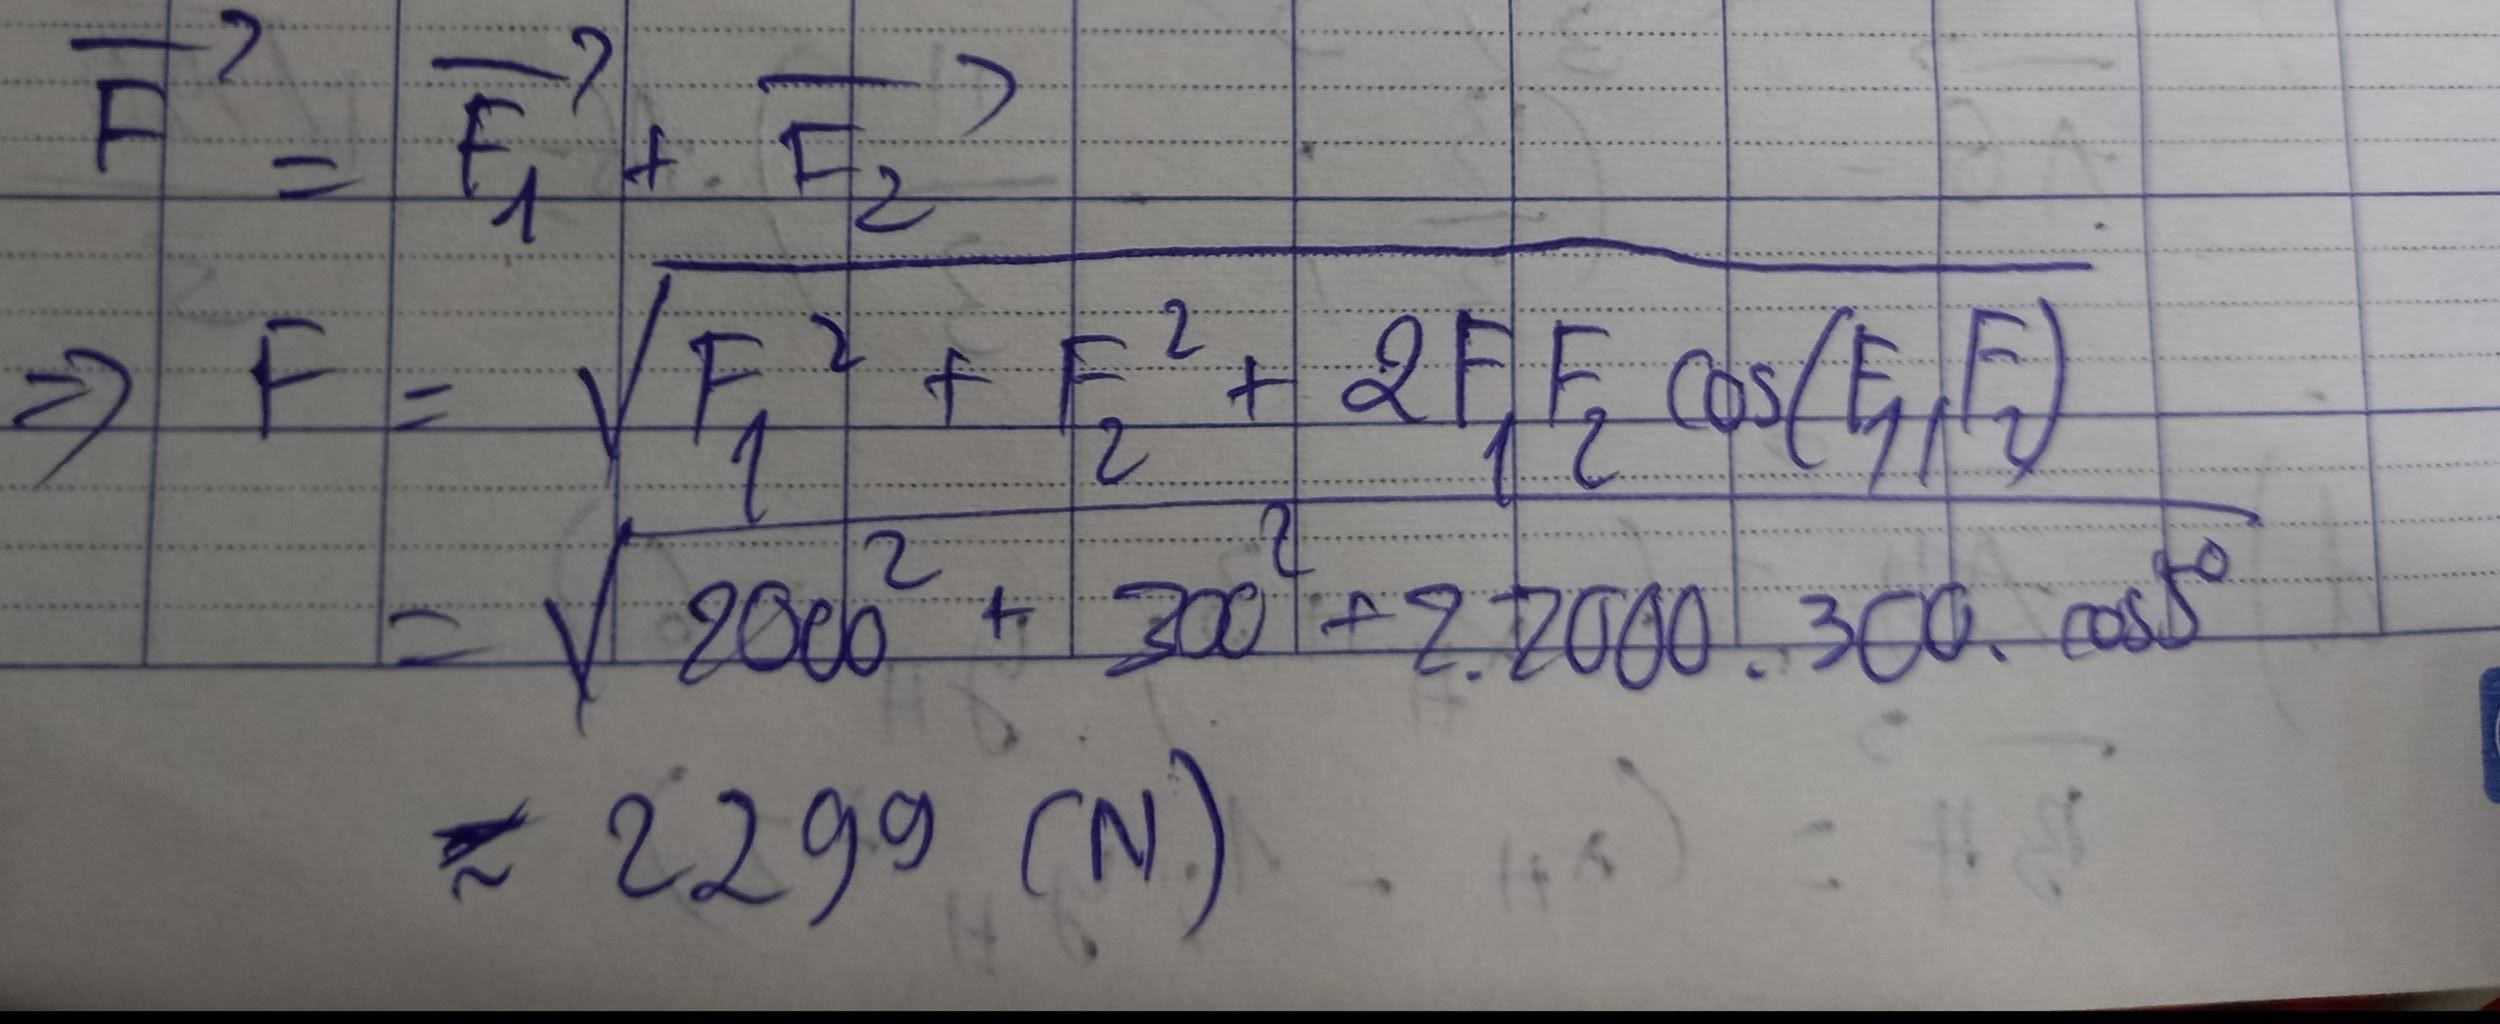 F⃗ = F₁⃗ + F₂⃗
⇒ F = √(F₁² + F₂² + 2F₁F₂ cos(F₁, F₂))
= √(2000² + 300² + 2.2000.300.cos5°)
≈ 2299 (N)